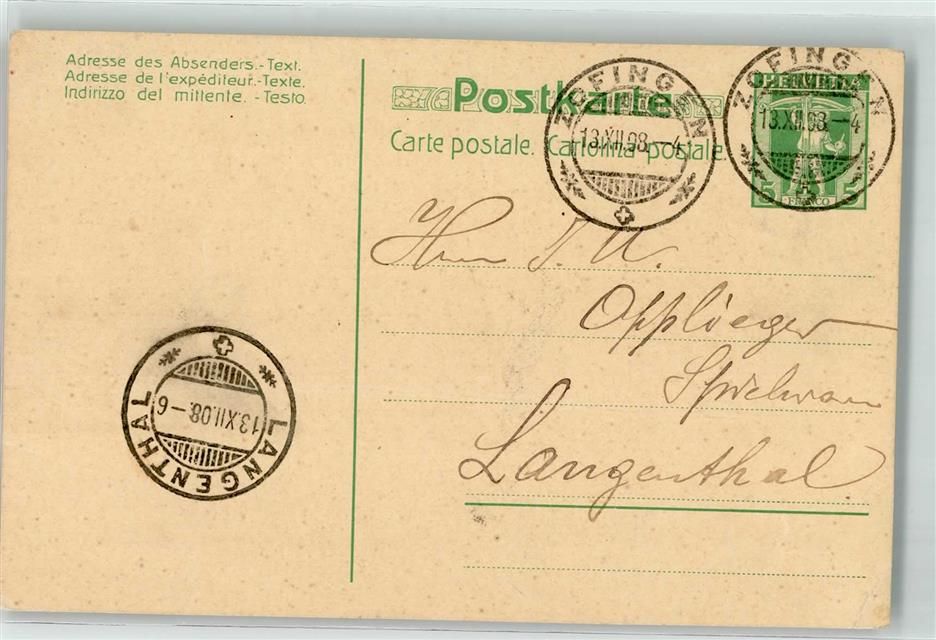 Adresse des Absenders.-Text.
Adresse de l'expéditeur.-Texte.
Indirizzo del mittente. -Testo.
Postkarte
Carte postale. Cartolina postale.
ZOFINGEN
13.XII.08.–4
ZOFINGEN
13.XII.08.–4
HELVETIA
5 5
FRANCO
Herrn J. U.
Spielwaren
Langenthal
LANGENTHAL
13.XII.08.–6